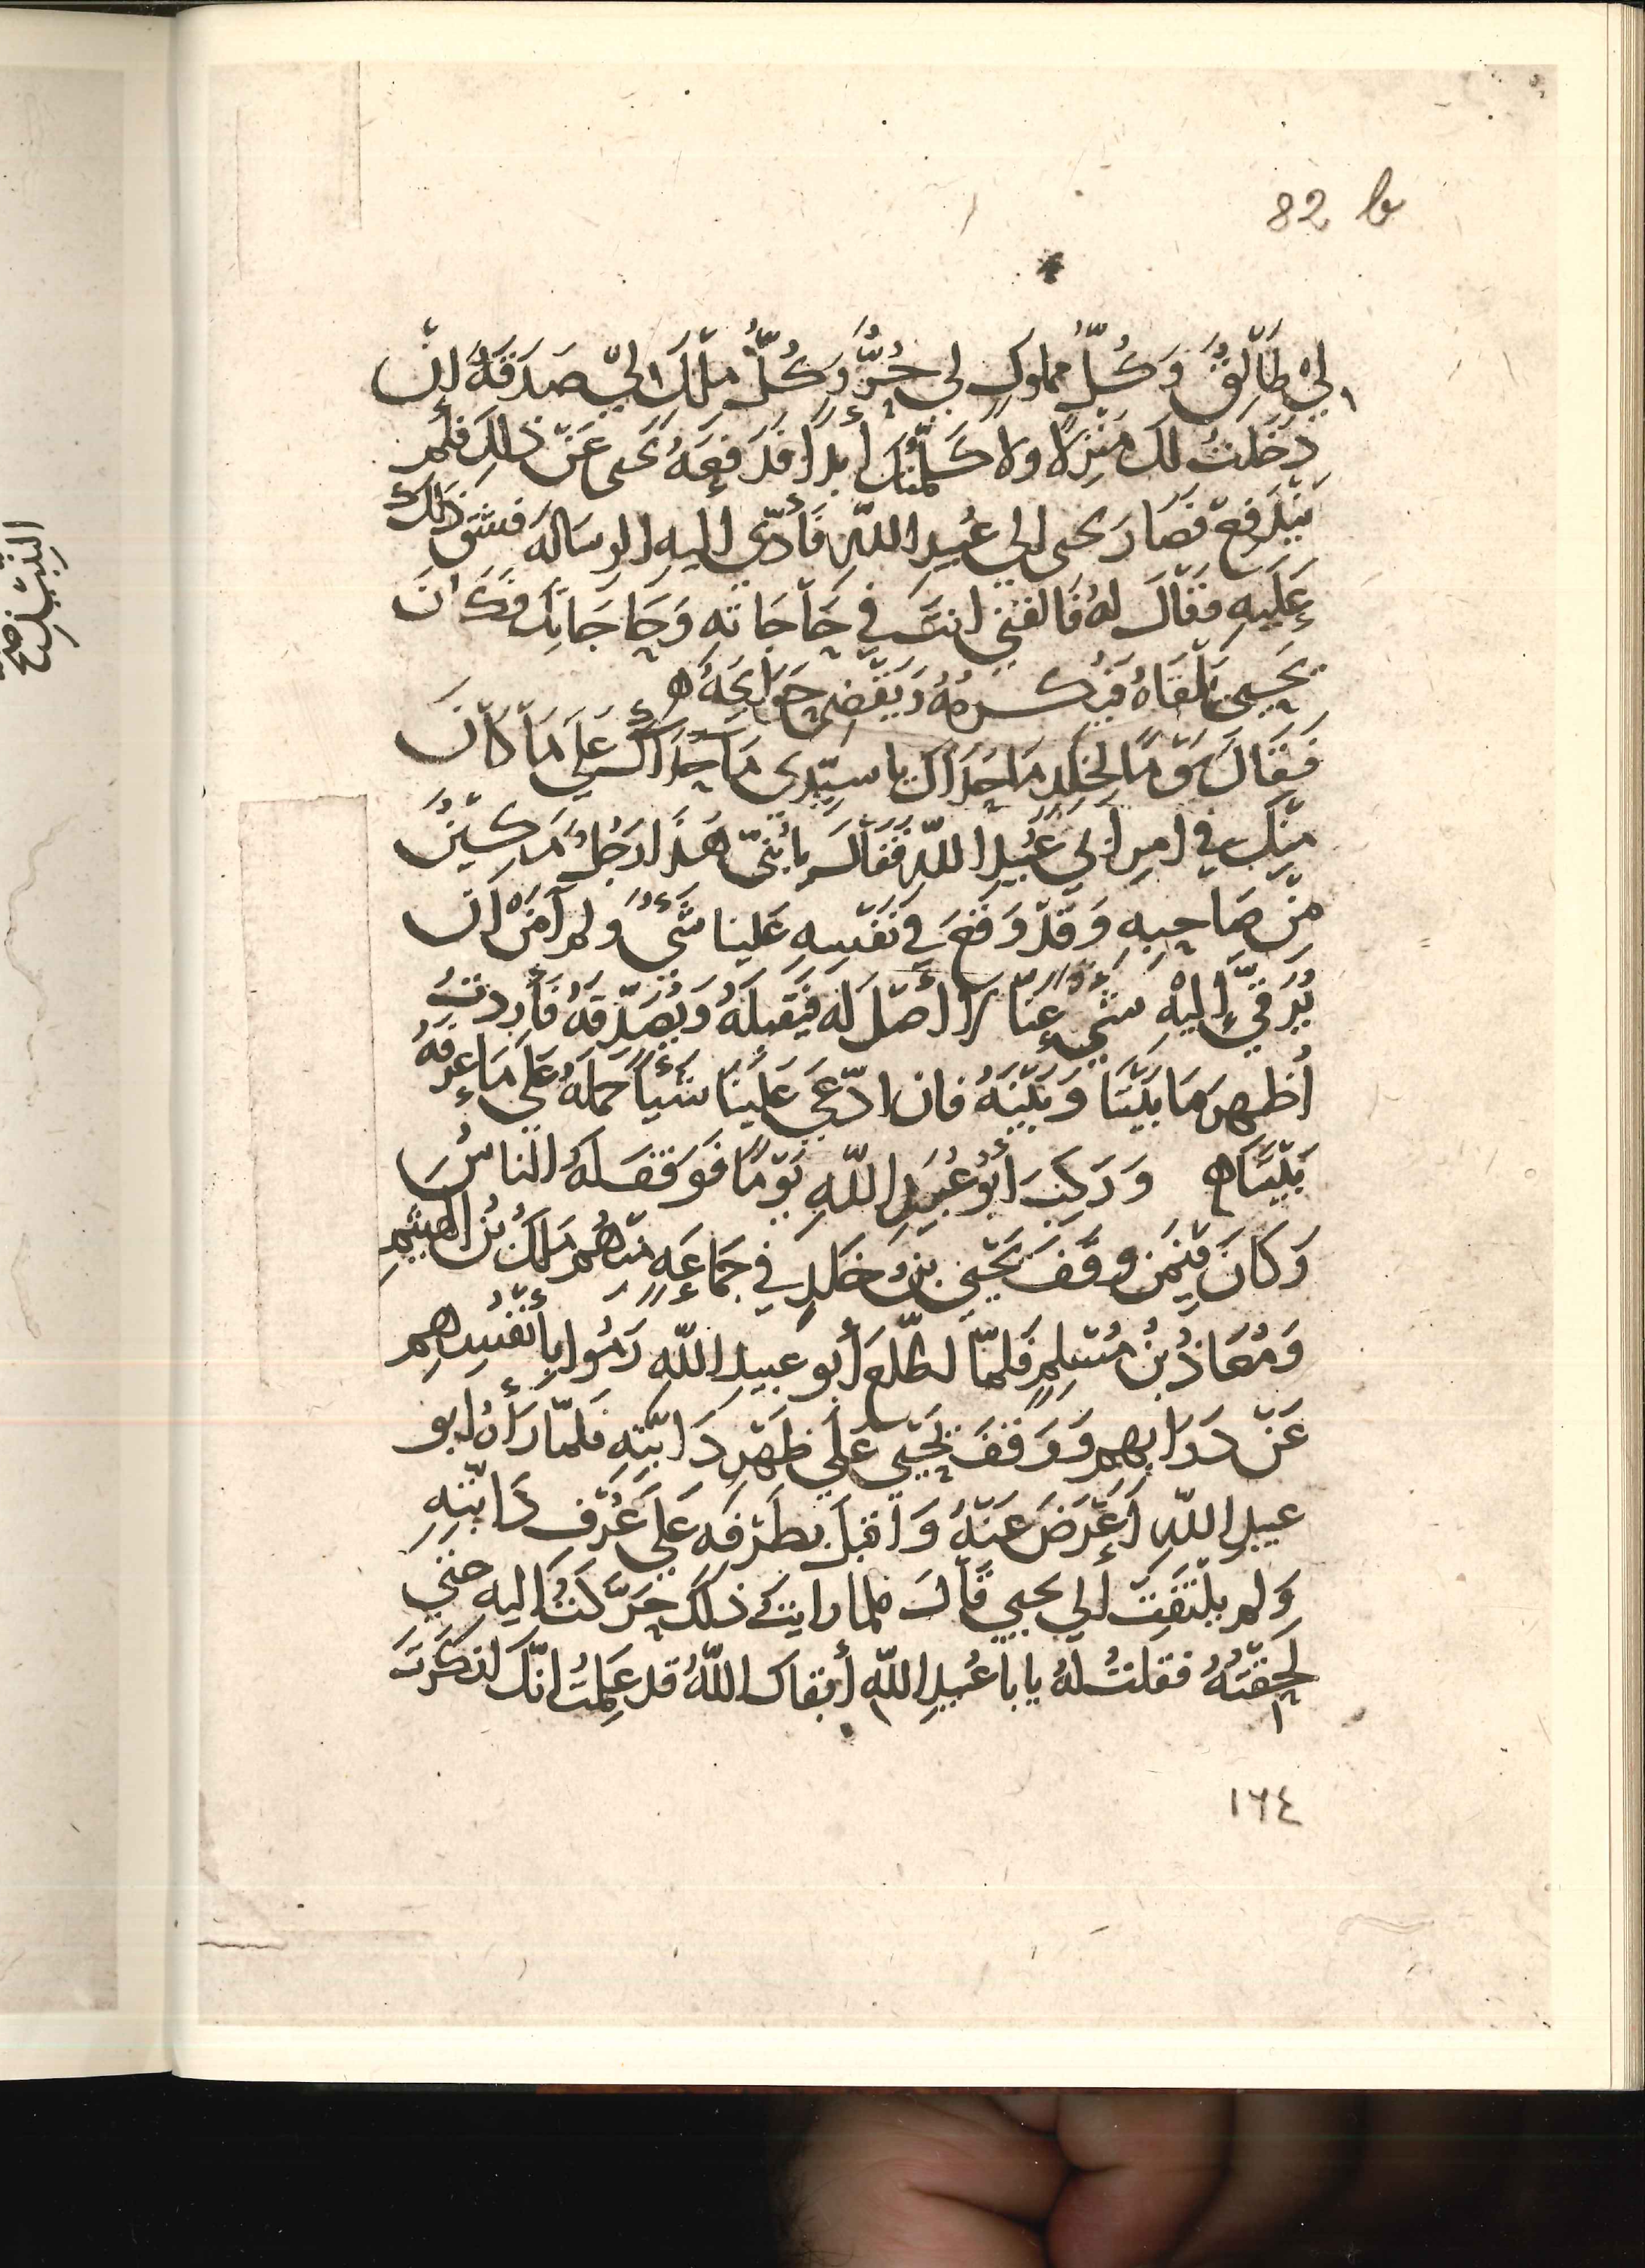 82 b
لِي طَالِقٌ وَكُلُّ مملوكٍ لِي حُرٌّ وَكُلُّ ملكٍ لِي صَدَقَةٌ إنْ
دَخَلتُ لكَ مَنْزِلًا ولا كَلَّمتُكَ أبدًا فَدَفَعَهُ يحيى عَنْ ذلِكَ فلم
يَنْدَفِعْ فَصَارَ يحيى الى عُبيدِ اللّٰهِ فَأدَّى اليهِ الرسَالَةَ فشق ذلكَ
عَلَيهِ فقَالَ لهُ فَالقَنِي انتَ فِي حَاجَاتهِ وَحَاجَاتِك فكَانَ
يَحيى يَلْقَاهُ فيُكرمُهُ وَيَقْضِي حَوَايجَهُ ه
فَقَالَ يَوْمًا لِخلدٍ مَا حَدَاكَ يا سيِّدِى مَا حَدَاكَ عَلَى مَا كَانَ
مِنْكَ في امرِ أبي عُبَيدِ اللّٰهِ فَقَالَ يا بُنَيَّ هَذَا رَجُلٌ مَكِينٌ
مِنْ صَاحِبِهِ وَقَدْ وَقَعَ فِي نَفْسِهِ عَلَينا شَىءٌ ولم آمَنْ ان
يُرَقِّيَ إليْهِ شَيءٌ عَنَّا لَا أصْلَ لَه فيَقْبلَهُ وَيُصَدِّقَهُ فَأردتُ
أُظهِرَ مَا بَيْنَنَا وَبَيْنَهُ فان ادَّعَى عَلَيْنَا شَيئًا حمَلَهُ عَلَى مَا عرفَهُ
بَيْنَنَا ه وَرَكِبَ أبُو عُبَيدِ اللّٰهِ يَوْمًا فَوَقفَ لَهُ الناسُ
وَكَانَ فِيْمَن وقَفَ يَحْيَى بنُ خلدٍ فِي جَمَاعَةٍ منهُم ملكُ بنُ الهيثمِ
وَمُعَاذُ بنُ مُسْلِمٍ فَلمَّا اطَّلَعَ أبو عبيدِ اللّٰهِ رَمَوا بِأَنْفُسِهِم
عَنْ دَوَابهم وَوَقَفَ يَحْيَى عَلَى ظَهْرِ دَابَّتهِ فلمَّا رَأهُ ابو
عبيدِ اللّٰهِ أعْرَضَ عَنْهُ وَاقبلَ بطَرْفه عَلَى عُرْفِ دَابَّتهِ
وَلم يلْتَفِتْ إلى يحيى قَالَ فلما رايتُ ذلكَ حَرَّكتُ اليه حتى
لَحِقْتُهُ فقلتُ لهُ يا با عُبيدِ اللّٰهِ أبقاك اللّٰهُ قد عَلِمتُ انّكَ انكَرتَ
١٦٤